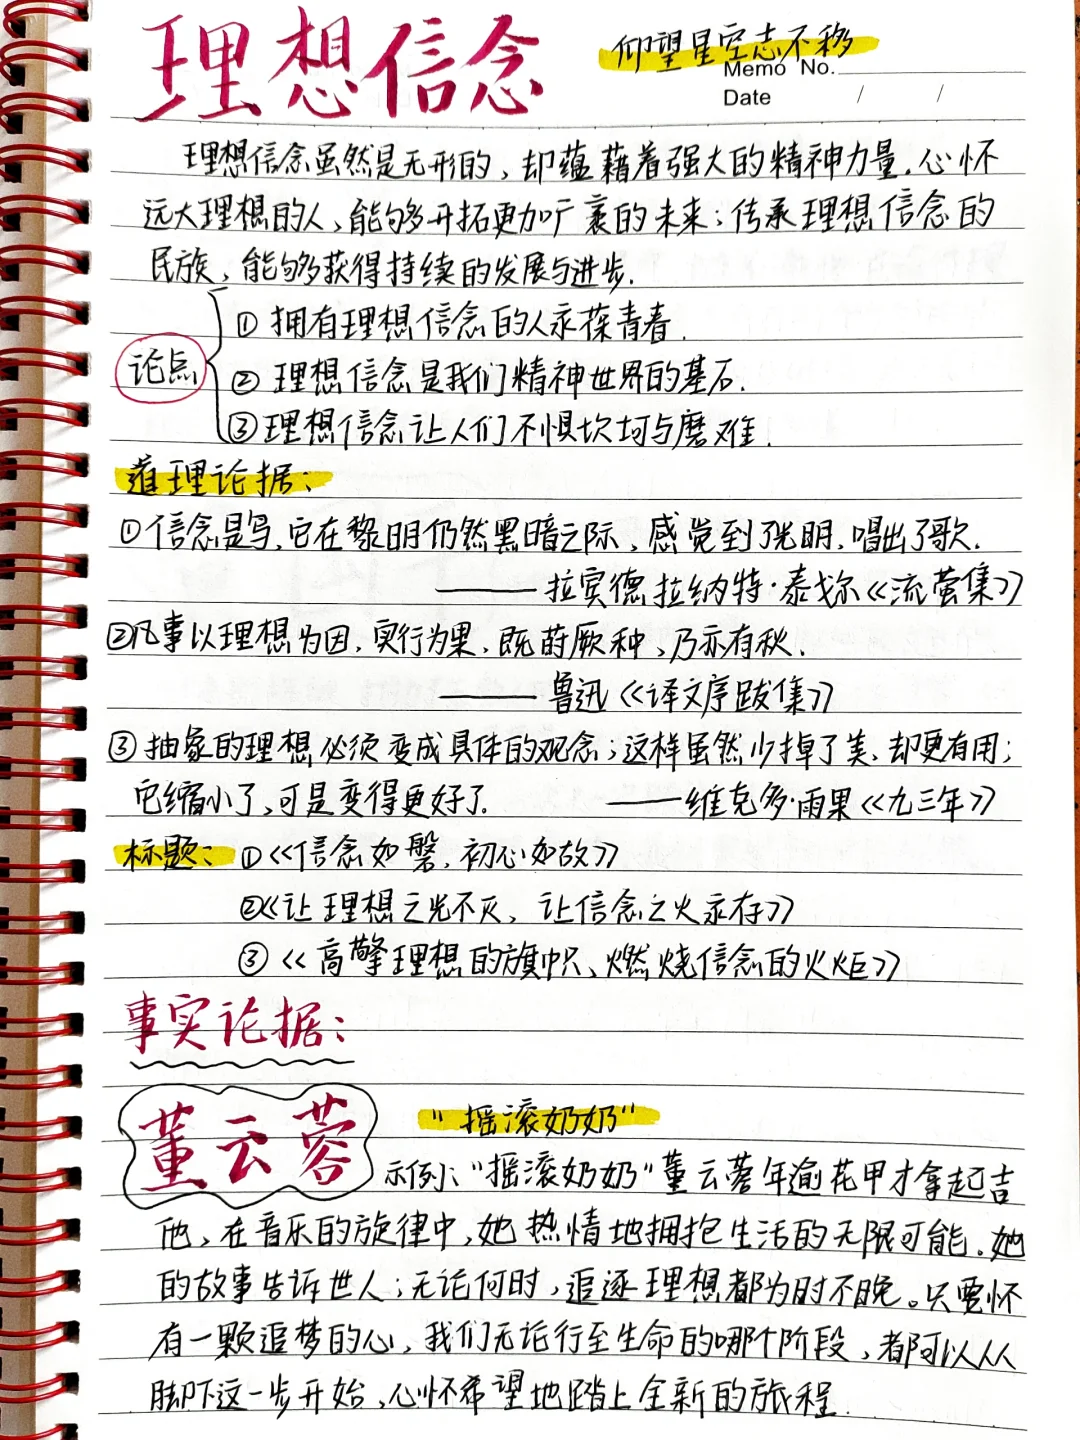 理想信念
仰望星空志不移
Memo No.
Date / /
理想信念虽然是无形的，却蕴藉着强大的精神力量.心怀
远大理想的人，能够开拓更加广袤的未来；传承理想信念的
民族，能够获得持续的发展与进步.
① 拥有理想信念的人永葆青春.
论点
② 理想信念是我们精神世界的基石.
③理想信念让人们不惧坎坷与磨难.
道理论据：
①信念是鸟，它在黎明仍然黑暗之际，感觉到了光明，唱出了歌.
——拉宾德拉纳特·泰戈尔《流萤集》
②凡事以理想为因，实行为果，既莳厥种，乃亦有秋.
——鲁迅《译文序跋集》
③ 抽象的理想必须变成具体的观念；这样虽然少掉了美，却更有用；
它缩小了，可是变得更好了. ——维克多·雨果《九三年》
标题：①《信念如磐，初心如故》
②《让理想之光不灭，让信念之火永存》
③《高擎理想的旗帜，燃烧信念的火炬》
事实论据：
董云蓉
"摇滚奶奶"
示例："摇滚奶奶"董云蓉年逾花甲才拿起吉
他，在音乐的旋律中，她热情地拥抱生活的无限可能。她
的故事告诉世人：无论何时，追逐理想都为时不晚。只要怀
有一颗追梦的心，我们无论行至生命的哪个阶段，都可以从
脚下这一步开始，心怀希望地踏上全新的旅程.